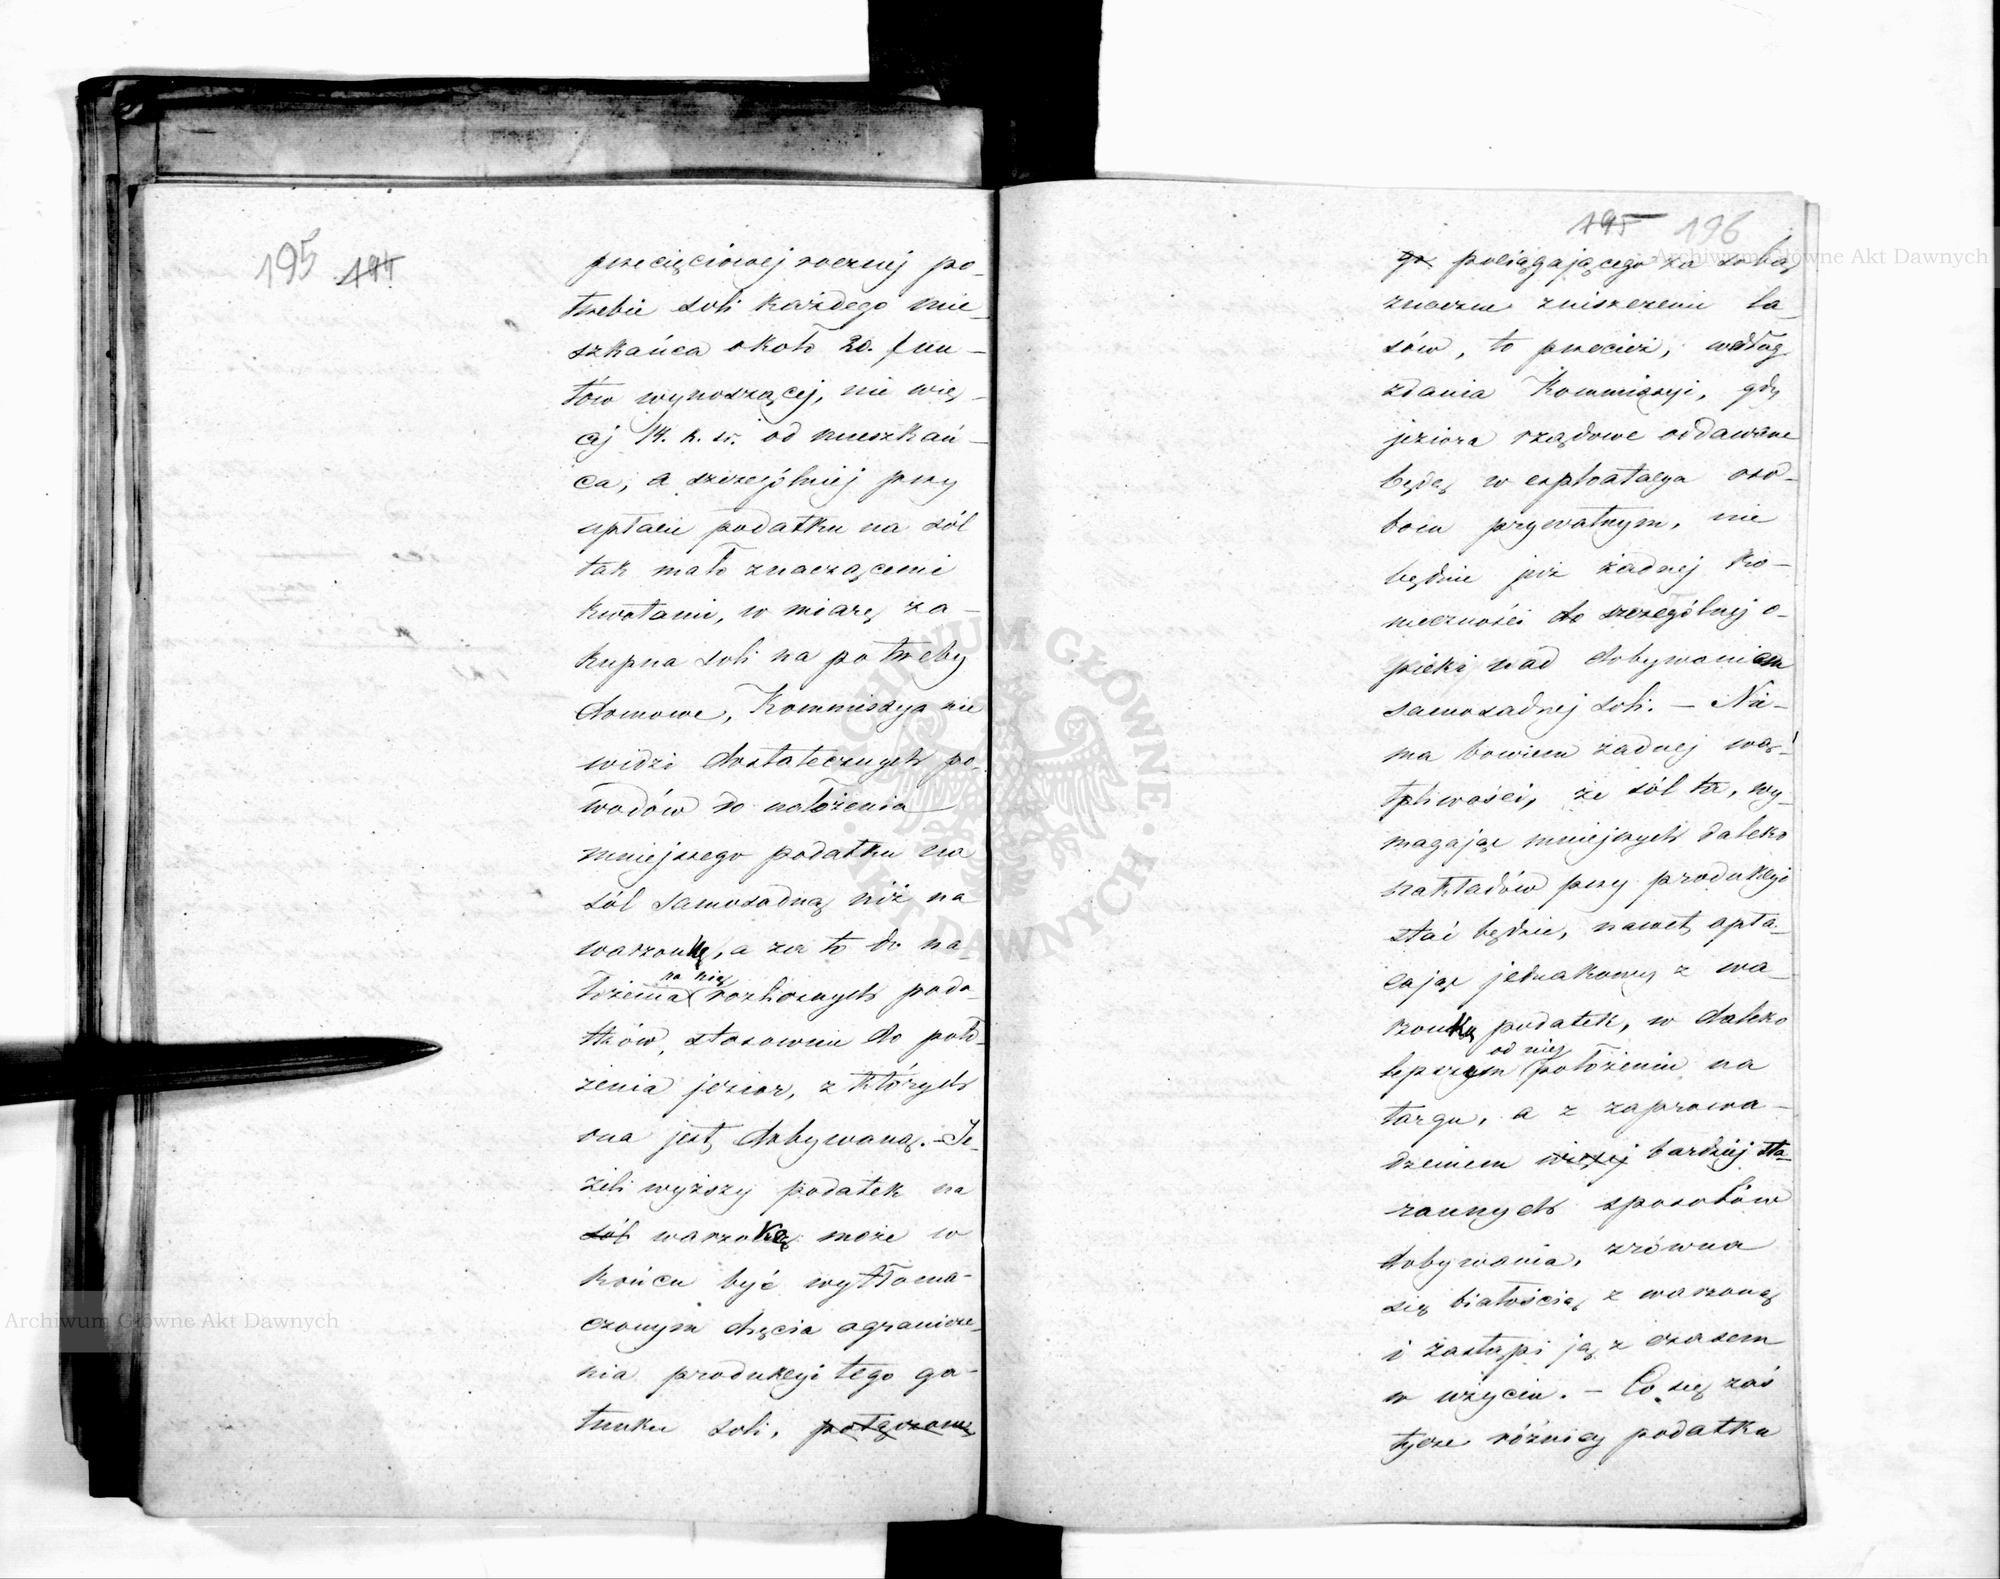 195 194
przecięciowej rocznej po-
trzebie soli każdego mie-
szkańca około 20. fun-
tów wynoszącej, nie wię-
cej 14. k. sr. od mieszkań-
ca, a szczególniej przy
opłacie podatku na sól
tak mało znaczącemi
kwotami, w miarę za-
kupna soli na potrzeby
domowe, Kommissya nie
widzi dostatecznych po-
wodów do nałożenia
mniejszego podatku na
sól samosadną niż na
warzonkę, a za to do na-
na nią
łożenia rozlicznych poda-
tków, stosownie do poło-
żenia jezior, z których
ona jest dobywaną. – Je-
żeli wyższy podatek na
sól warzonkę może w
końcu być wytłoma-
czonym chęcią ogranicze-
nia produkcyi tego ga-
tunku soli, połączone
195 196
go pociągającego za sobą
znaczne zniszczenie la-
sów, to przecież, według
zdania Kommissyi, gdy
jeziora rządowe oddawane
będą w exploatacyą oso-
bom prywatnym, nie
będzie już żadnej ko-
nieczności do szczególnej o-
pieki nad dobywaniem
samosadnej soli. – Nie-
ma bowiem żadnej wą-
tpliwości, że sól ta, wy-
magając mniejszych daleko
nakładów przy produkcyi
stać będzie, nawet opła-
cając jednakowy z wa-
rzonką podatek, w daleko
od niej
lepszym położeniu na
targu, a z zaprowa-
dzeniem więcej bardziej sta-
rannych sposobów
dobywania, zrówna
się białością z warzoną
i zastąpi ją z czasem
w użyciu. – Co się zaś
tycze różnicy podatku
Archiwum Główne Akt Dawnych
Archiwum Główne Akt Dawnych
ARCHIWUM GŁÓWNE
AKT DAWNYCH